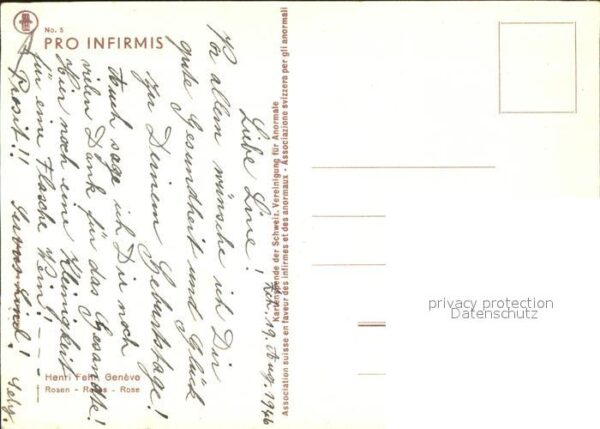 No. 5
PRO INFIRMIS
19. Aug. 1946
Liebe Line!
Vor allem wünsche ich Dir
gute Gesundheit und Glück
zu Deinem Geburtstage!
Auch sage ich Dir noch
vielen Dank für das Gesandte!
Hier noch eine Kleinigkeit
für eine Flasche Wein!
Prosit!!
Kartenspende der Schweiz. Vereinigung für Anormale
Association suisse en faveur des infirmes et des anormaux - Associazione svizzera per gli anormali
Henri Fehr, Genève
Rosen - Roses - Rose
privacy protection
Datenschutz